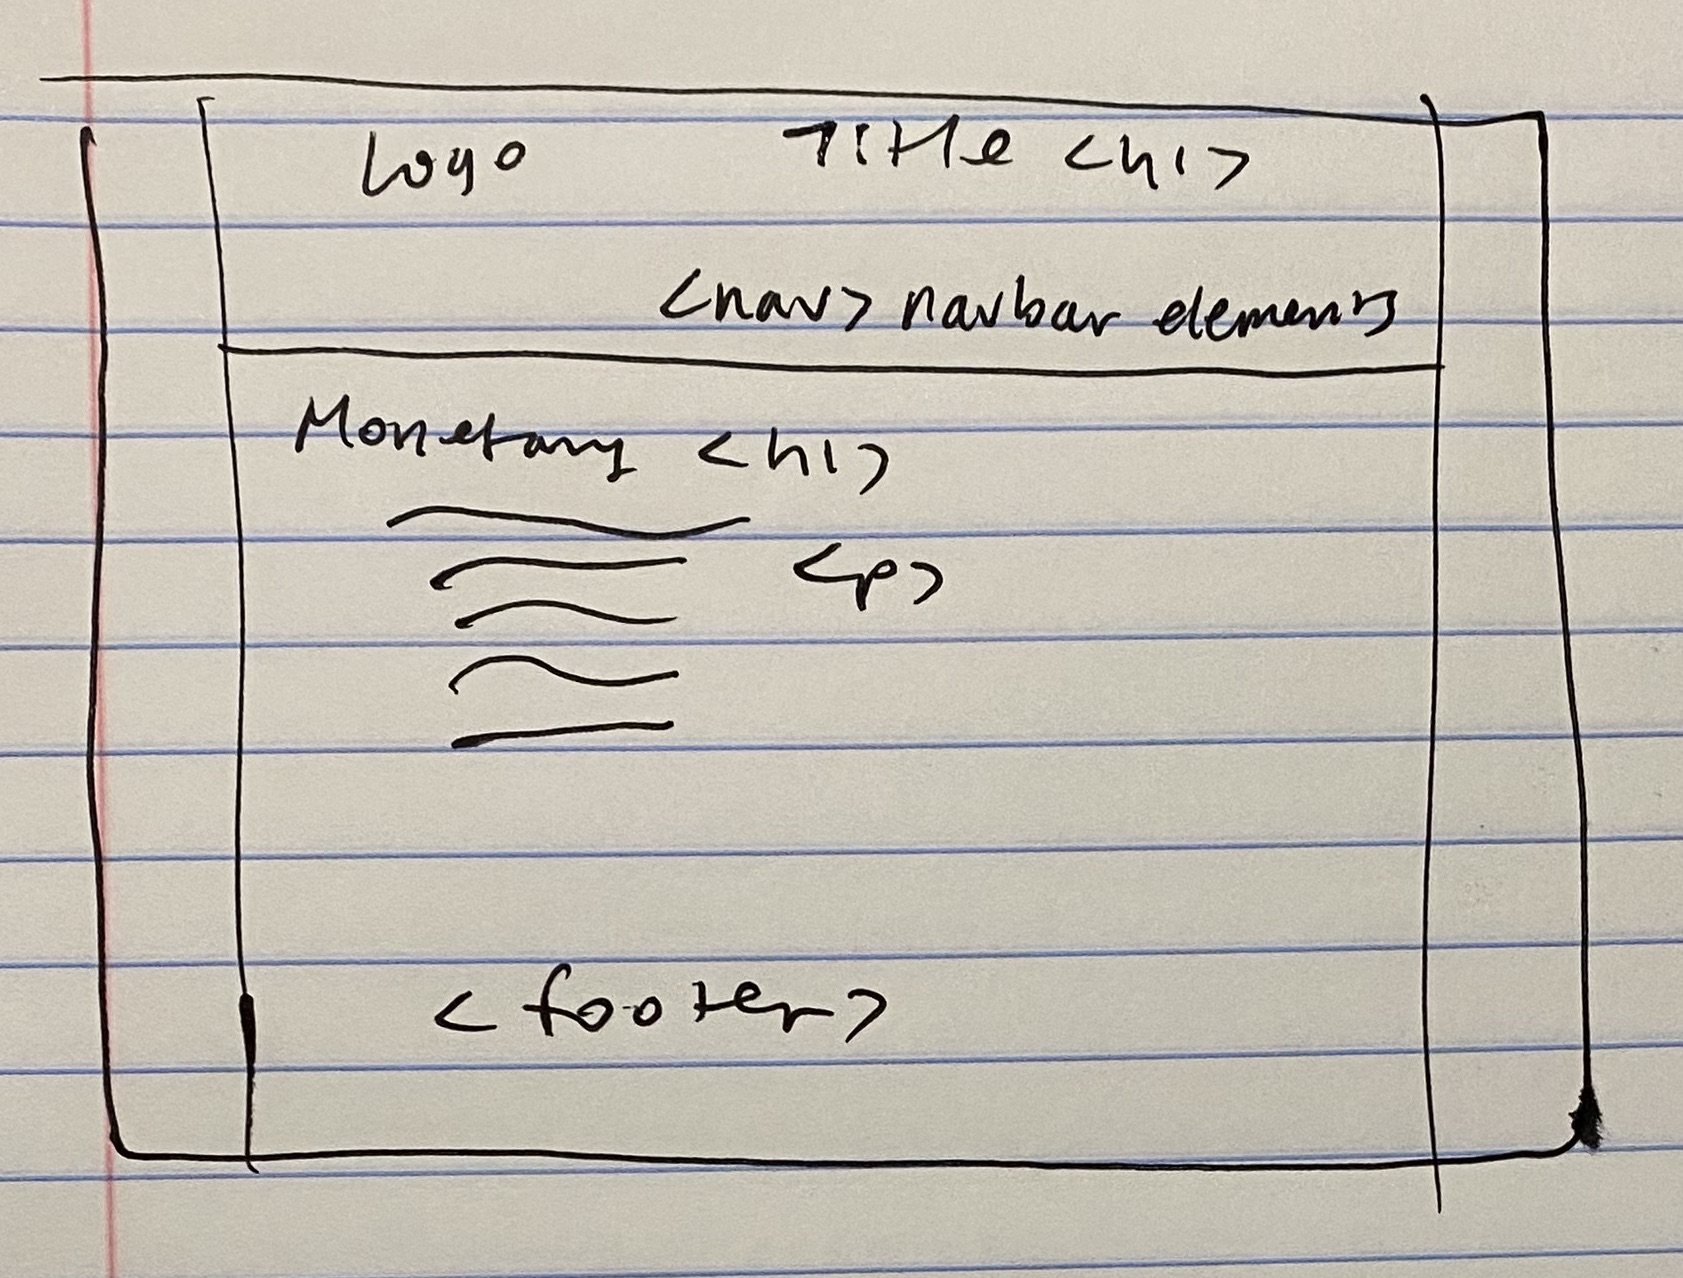 Logo Title <h1>
<nav> navbar elements
Monetary <h1>
<p>
<footer>